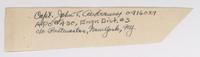 Capt. John T. 0916087
APO # 430, Engr. Dist. #3
c/o Postmaster, New York, N.Y.